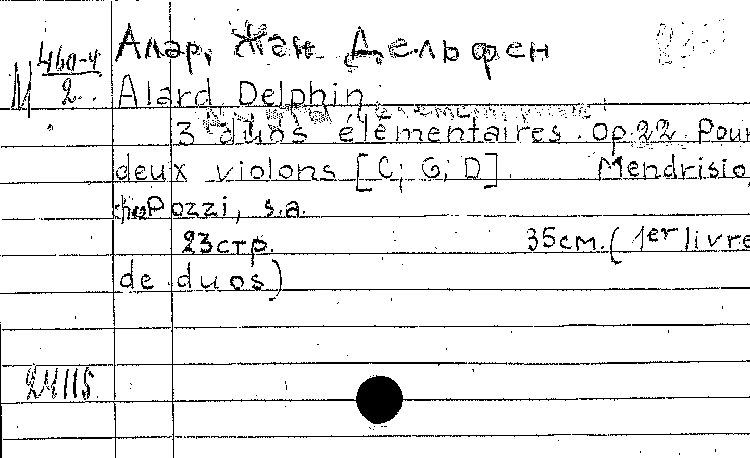 Алар, Жан Дельфен
М 460-4
2.
Alard Delphin
3 duos élémentaires. Op.22 Pour
deux violons [C; G; D]. Mendrisio,
chez Pozzi, s.a.
23стр. 35см. (1er livre
de duos)
24115